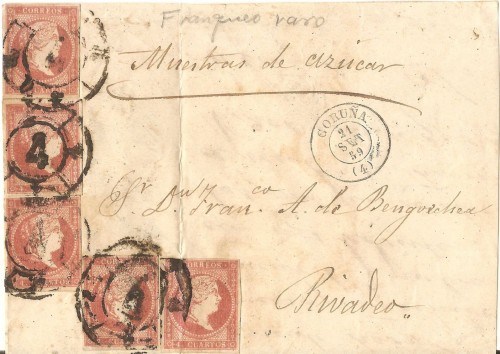 Franqueo raro
CORREOS
Muestras de azúcar
CORUÑA
21
SET
59
(4)
4
CORREOS
Sr. Dn Franco. A. de Bengoechea
4
CORREOS
CUARTOS
Rivadeo